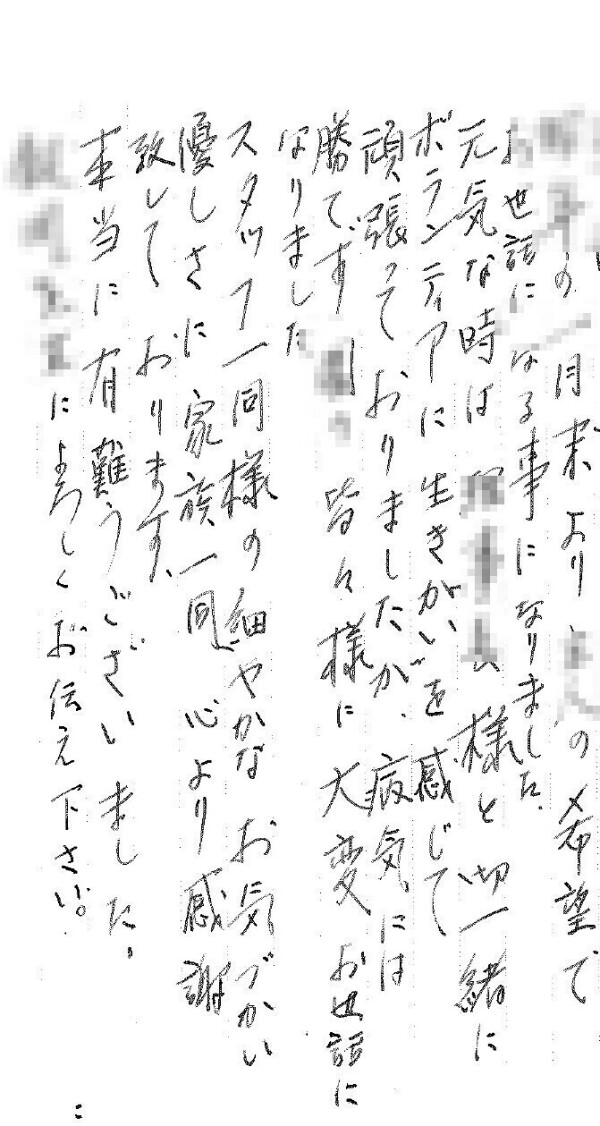 の一月末よりの希望で
お世話になる事になりました。
元気な時は様と御一緒に
ボランティアに生きがいを感じて
頑張っておりましたが、病気には
勝てず皆々様に大変お世話に
なりました
スタッフ一同様の細やかなお気づかい
優しさに家族一同、心より感謝
致しております、
本当に有難うございました。
によろしくお伝え下さい。